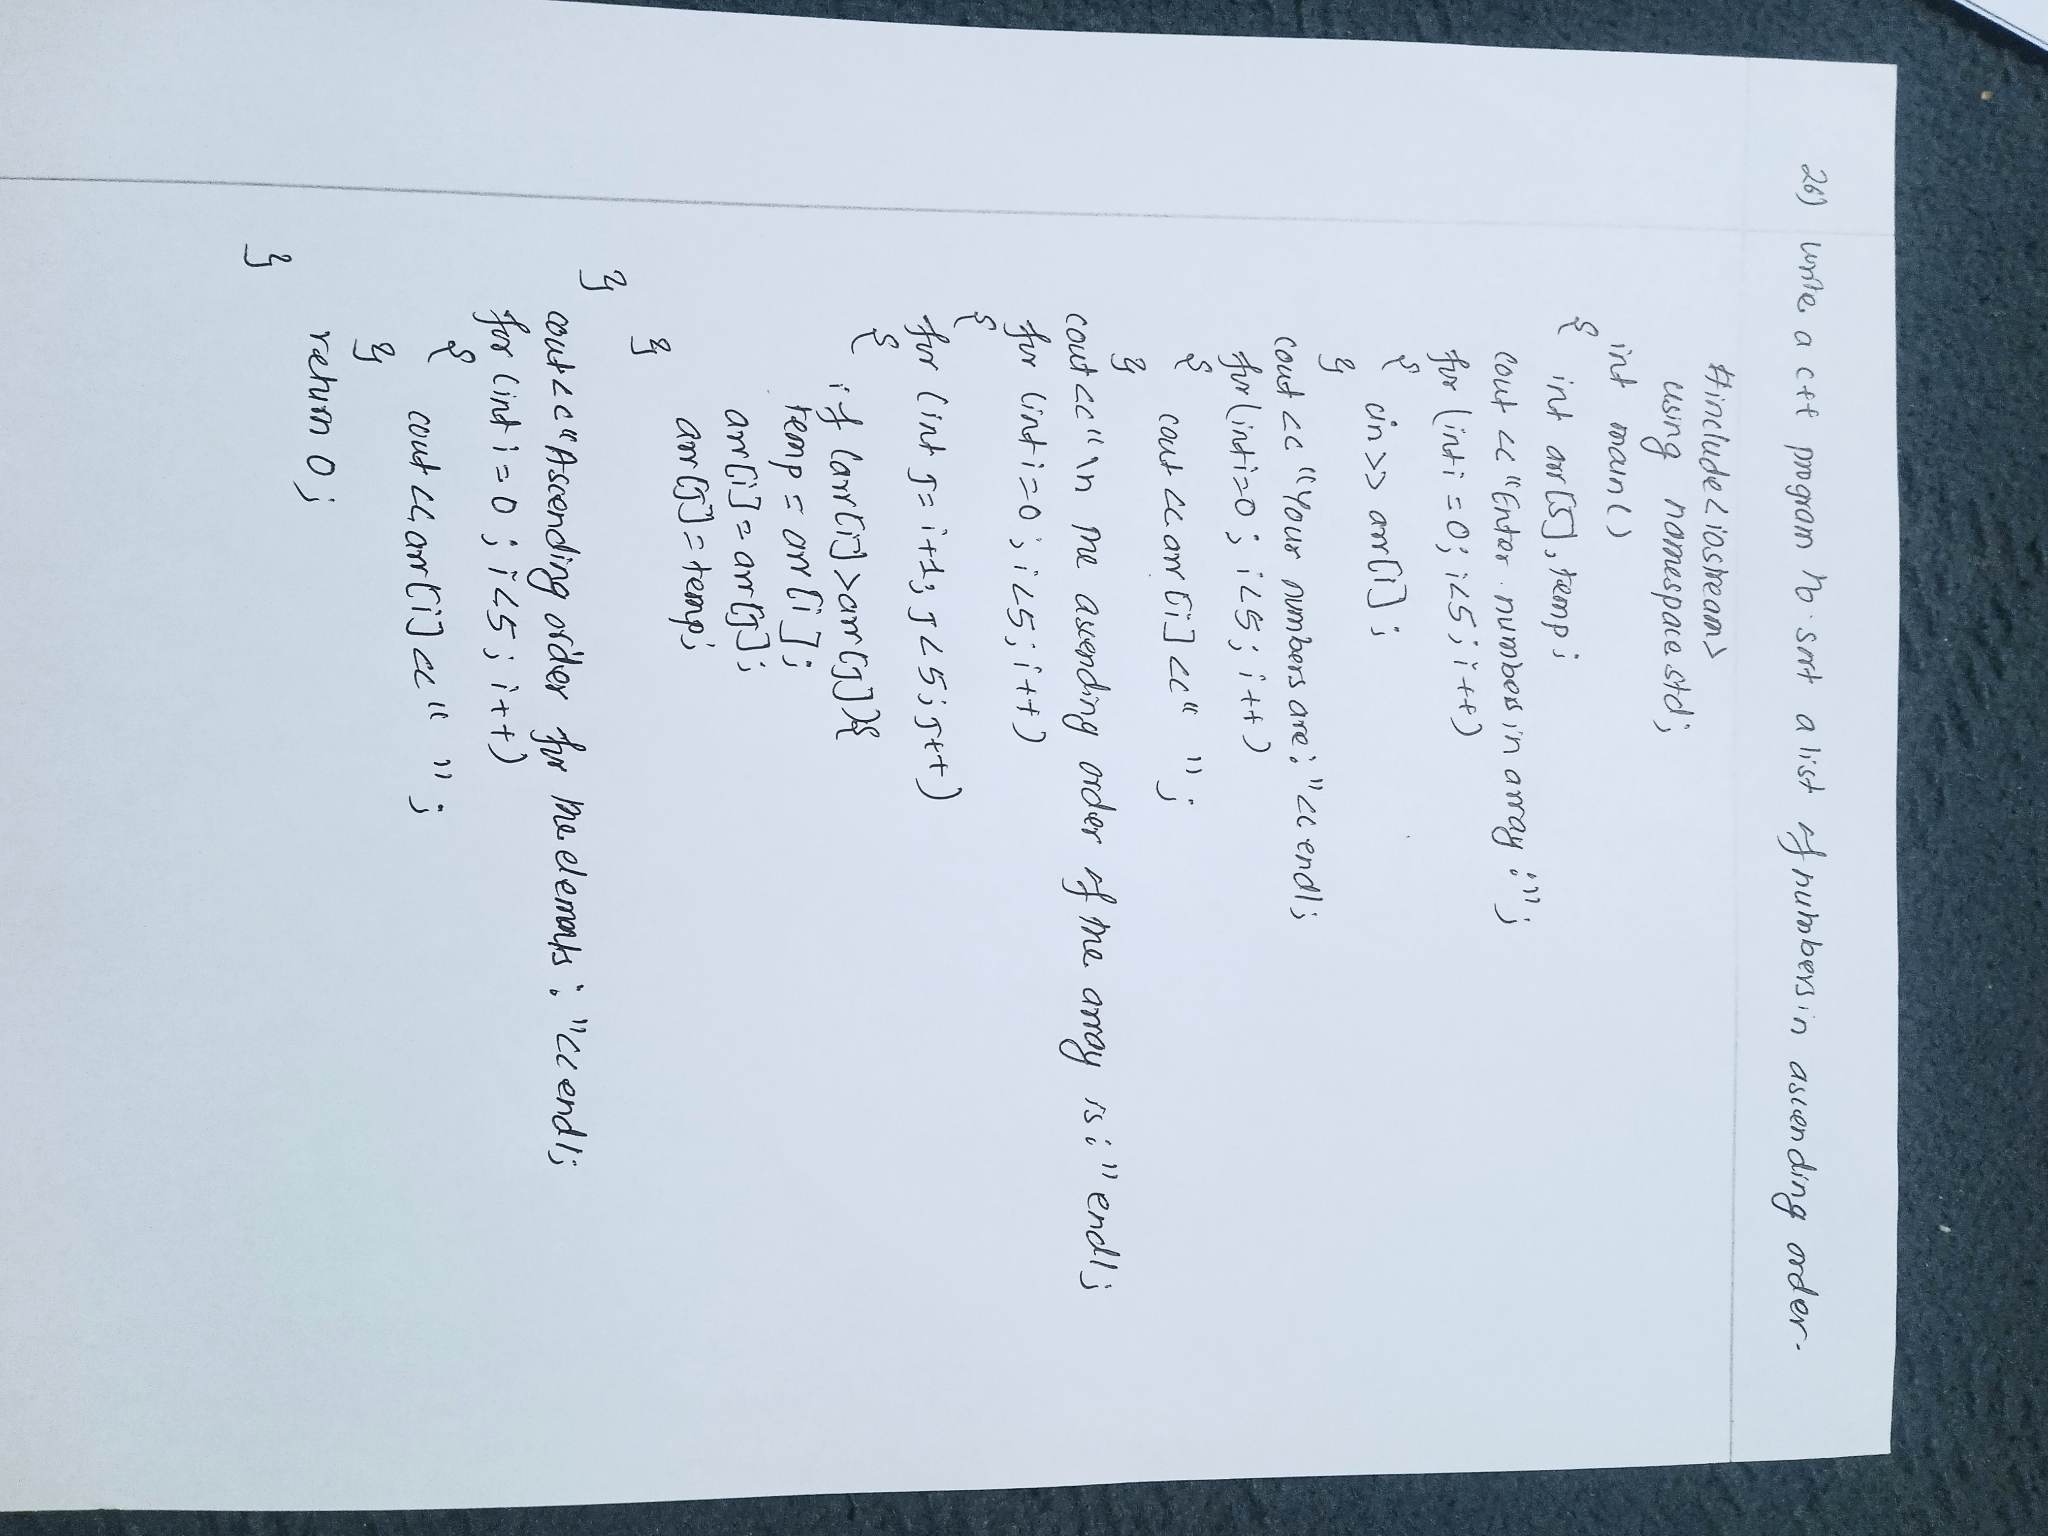 26) write a c++ program to sort a list of numbers in ascending order.
#include<iostream>
using namespace std;
int main()
{ int arr[5], temp;
cout << "Enter numbers in array :";
for (int i = 0; i<5; i++)
{
cin >> arr[i];
}
cout << "Your numbers are: "<< endl;
for(int i=0; i<5; i++)
{
cout << arr[i] << " ";
}
cout<<"\n the ascending order of the array is:" endl;
for (int i=0; i<5; i++)
{
for (int j= i+1; j<5; j++)
{
if (arr[i]>arr[j]){
temp = arr[i];
arr[i]= arr[j];
arr[j]= temp;
}
}
cout<<"Ascending order for the elements: "<<endl;
for (int i=0; i<5; i++)
{
cout <<arr[i]<< " ";
}
return 0;
}